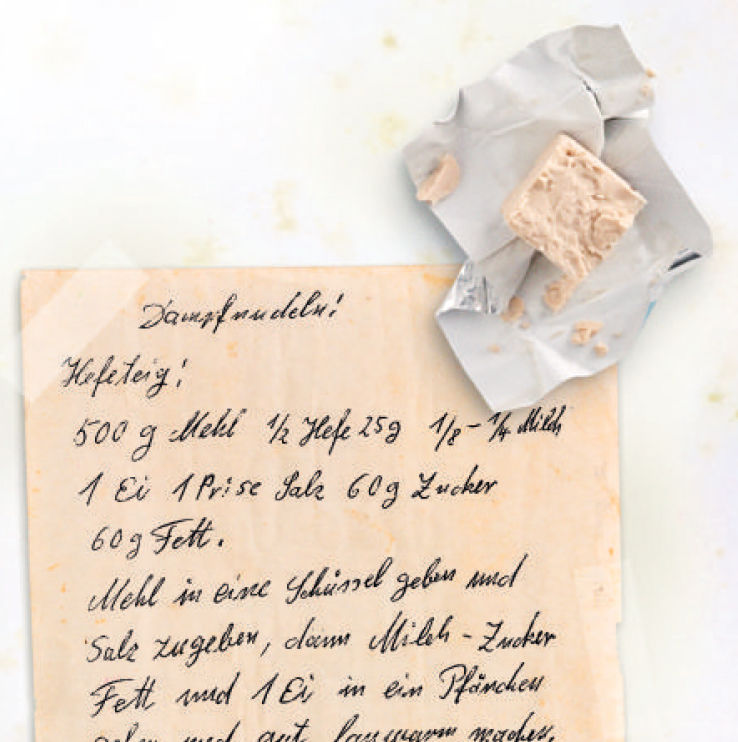 Dampfnudeln!
Hefeteig!
500 g Mehl 1/2 Hefe 25g 1/8 - 1/4 Milch
1 Ei 1 Prise Salz 60g Zucker
60g Fett.
Mehl in eine Schüssel geben und
Salz zugeben, dann Milch - Zucker
Fett und 1 Ei in ein Pfänchen
geben und gut lauwarm machen.